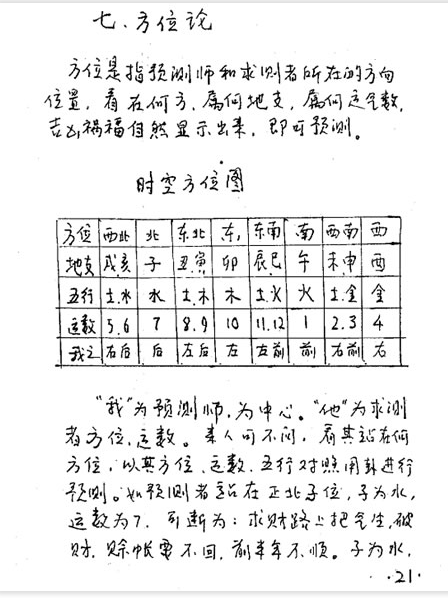 七、方位论
方位是指预测师和求测者所在的方向
位置，看在何方，属何地支，属何运气数，
吉凶祸福自然显示出来，即可预测。
时空方位图
方位 西北 北 东北 东 东南 南 西南 西
地支 戌亥 子 丑寅 卯 辰巳 午 未申 酉
五行 土.水 水 土.木 木 土.火 火 土.金 金
运数 5.6 7 8.9 10 11.12 1 2.3 4
我之 右后 后 左后 左 左前 前 右前 右
"我"为预测师，为中心。"他"为求测
者方位、运数。来人可不问，看其站在何
方位，以其方位、运数、五行对照用卦进行
预测。如预测者站在正北子位，子为水，
运数为7，可断为：求财路上把气生，破
财，赊帐要不回，前半年不顺。子为水，
·21·